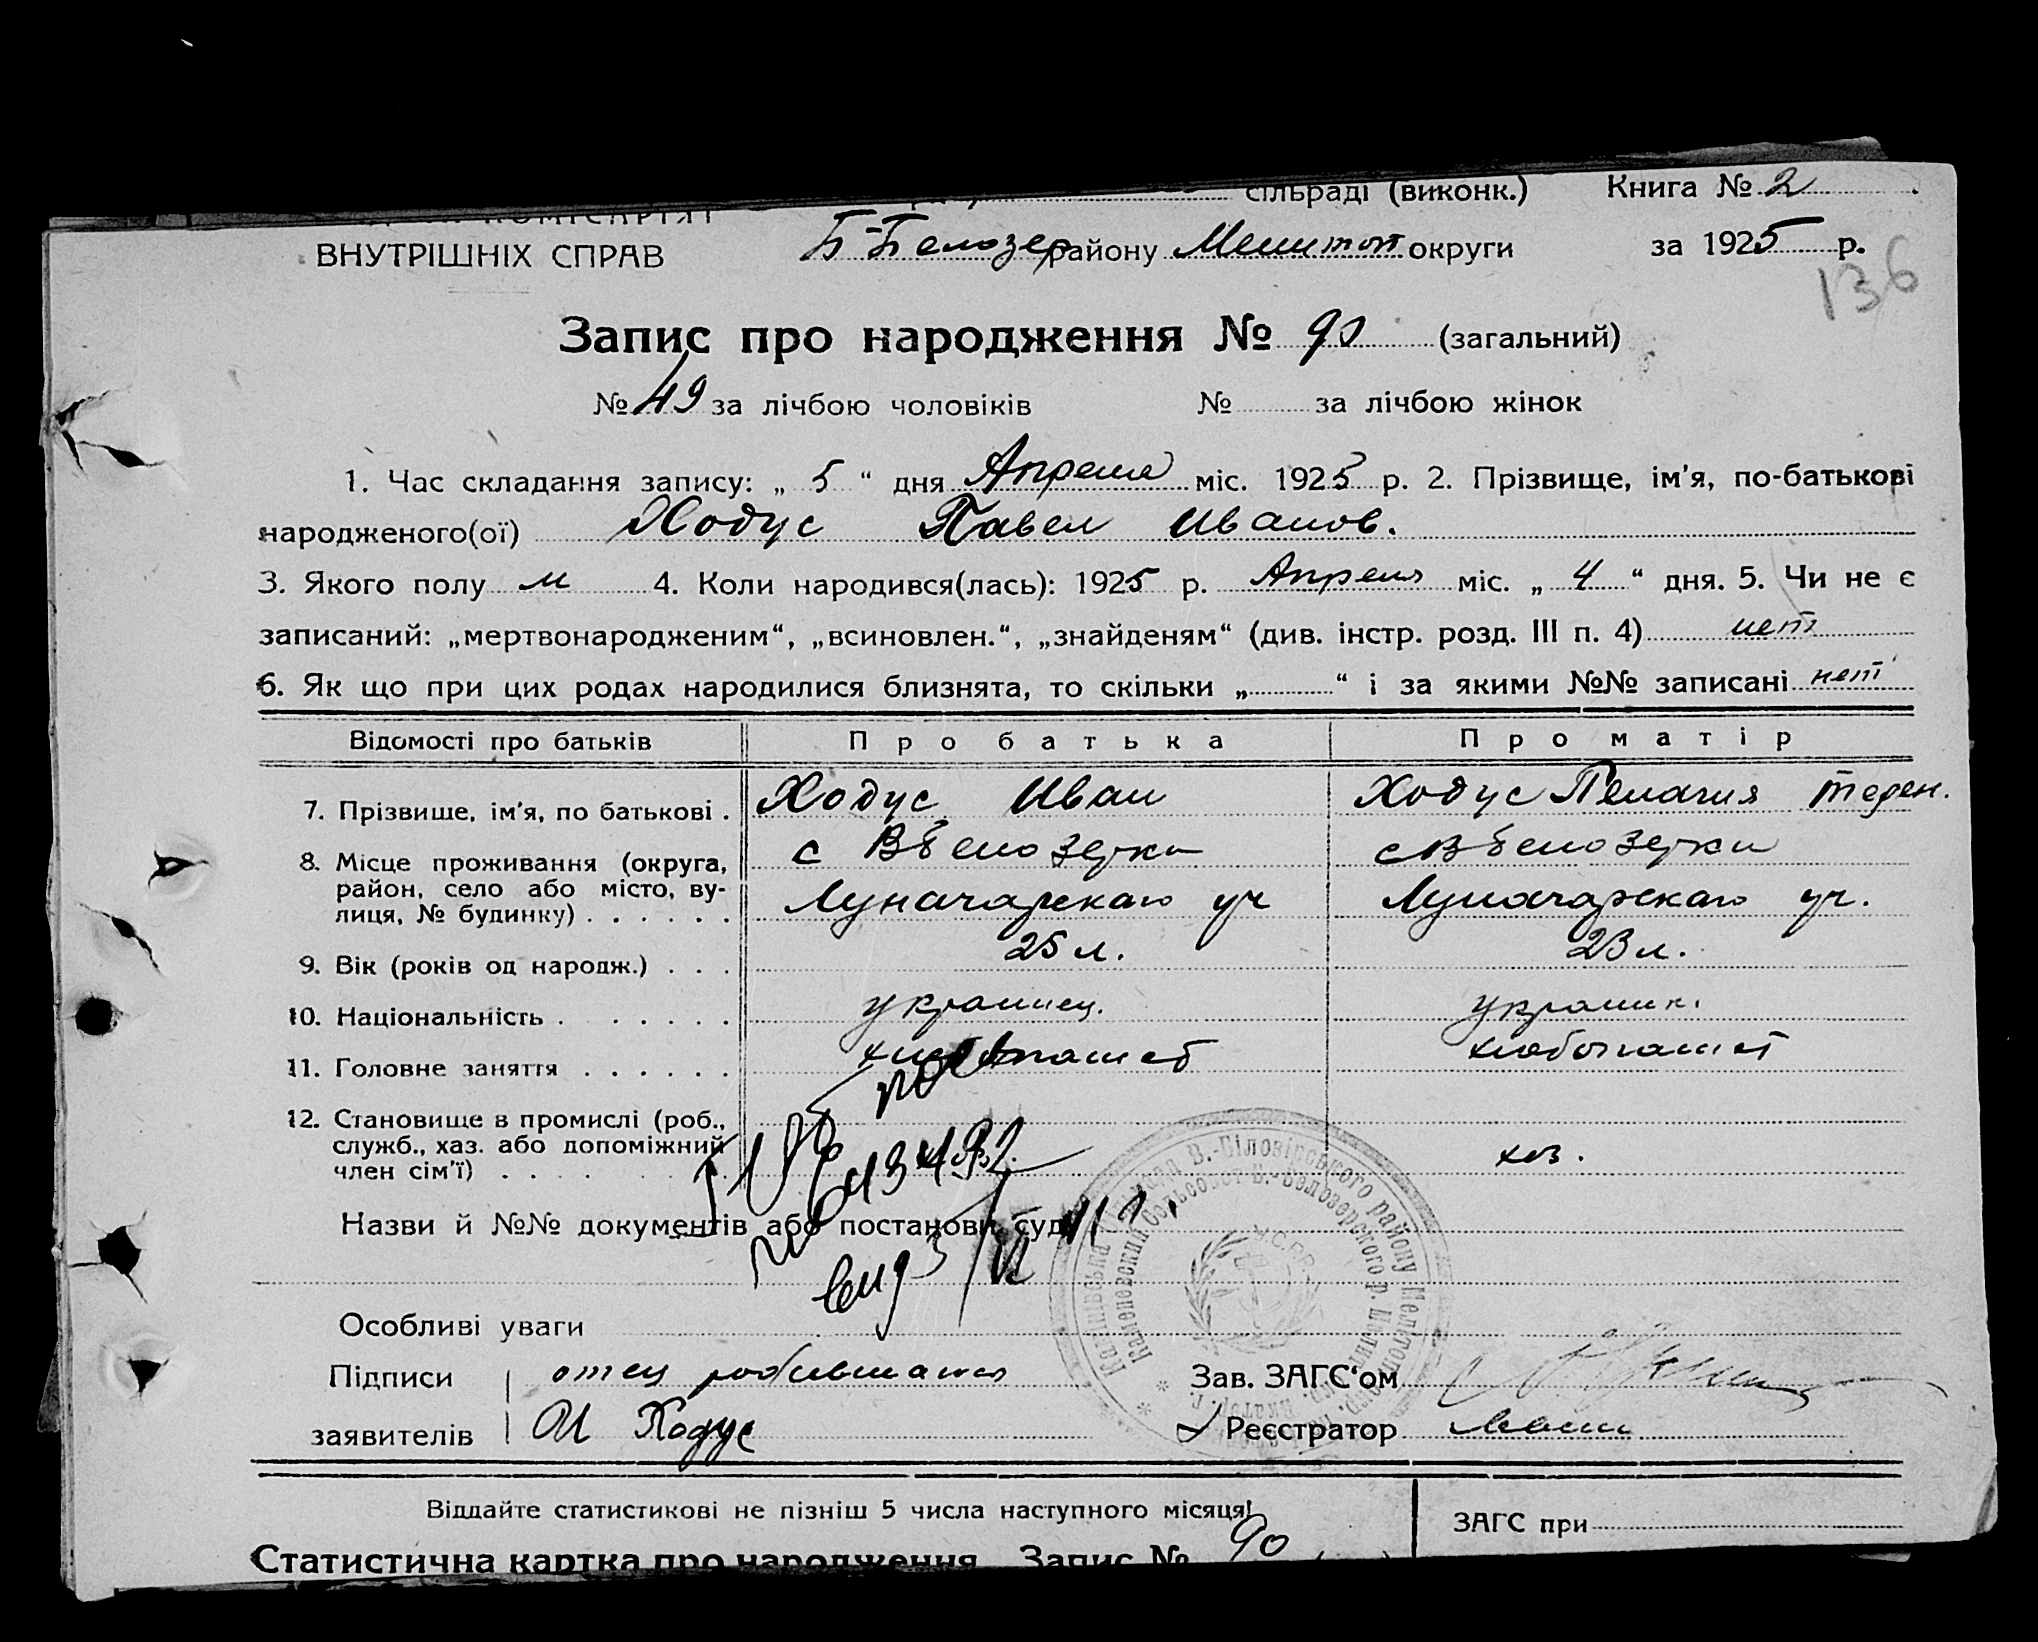 сільраді (виконк.) Книга № 2
ВНУТРІШНІХ СПРАВ Б-Белозер району Мелитоп округи за 1925 р.
136
Запис про народження № 90 (загальний)
№ 49 за лічбою чоловіків № за лічбою жінок
1. Час складання запису: „ 5 “ дня Апреля міс. 1925 р. 2. Прізвище, ім'я, по-батькові
народженого(ої) Ходус Павел Иванов.
3. Якого полу м 4. Коли народився(лась): 1925 р. Апреля міс. „ 4 “ дня. 5. Чи не є
записаний: „мертвонародженим“, „всиновлен.“, „знайденям“ (див. інстр. розд. III п. 4) нет
6. Як що при цих родах народилися близнята, то скільки „ “ і за якими №№ записані нет
Відомості про батьків Про батька Про матір
7. Прізвише, ім'я, по батькові . Ходус Иван Ходус Пелагия терен.
8. Місце проживання (округа, с Вбелозерки с Вбелозерки
район, село або місто, ву-
лиця, № будинку) . . . . . . Луначарскаго уч Луначарскаго уч.
9. Вік (років од народж.) . . . 25 л. 23 л.
10. Національність . . . . . . . украинец. украин.
11. Головне заняття . . . . . . хлебопашеб хлебопашеб
12. Становище в промислі (роб.,
служб., хаз. або допоміжний
член сім'ї) . . . . хоз.
Назви й №№ документів або постанови суд
Особливі уваги
Підписи отец Зав. ЗАГС'ом
заявителів И Ходус Реєстратор
Віддайте статистикові не пізніш 5 числа наступного місяця! ЗАГС при
Статистична картка про народження Запис № 90